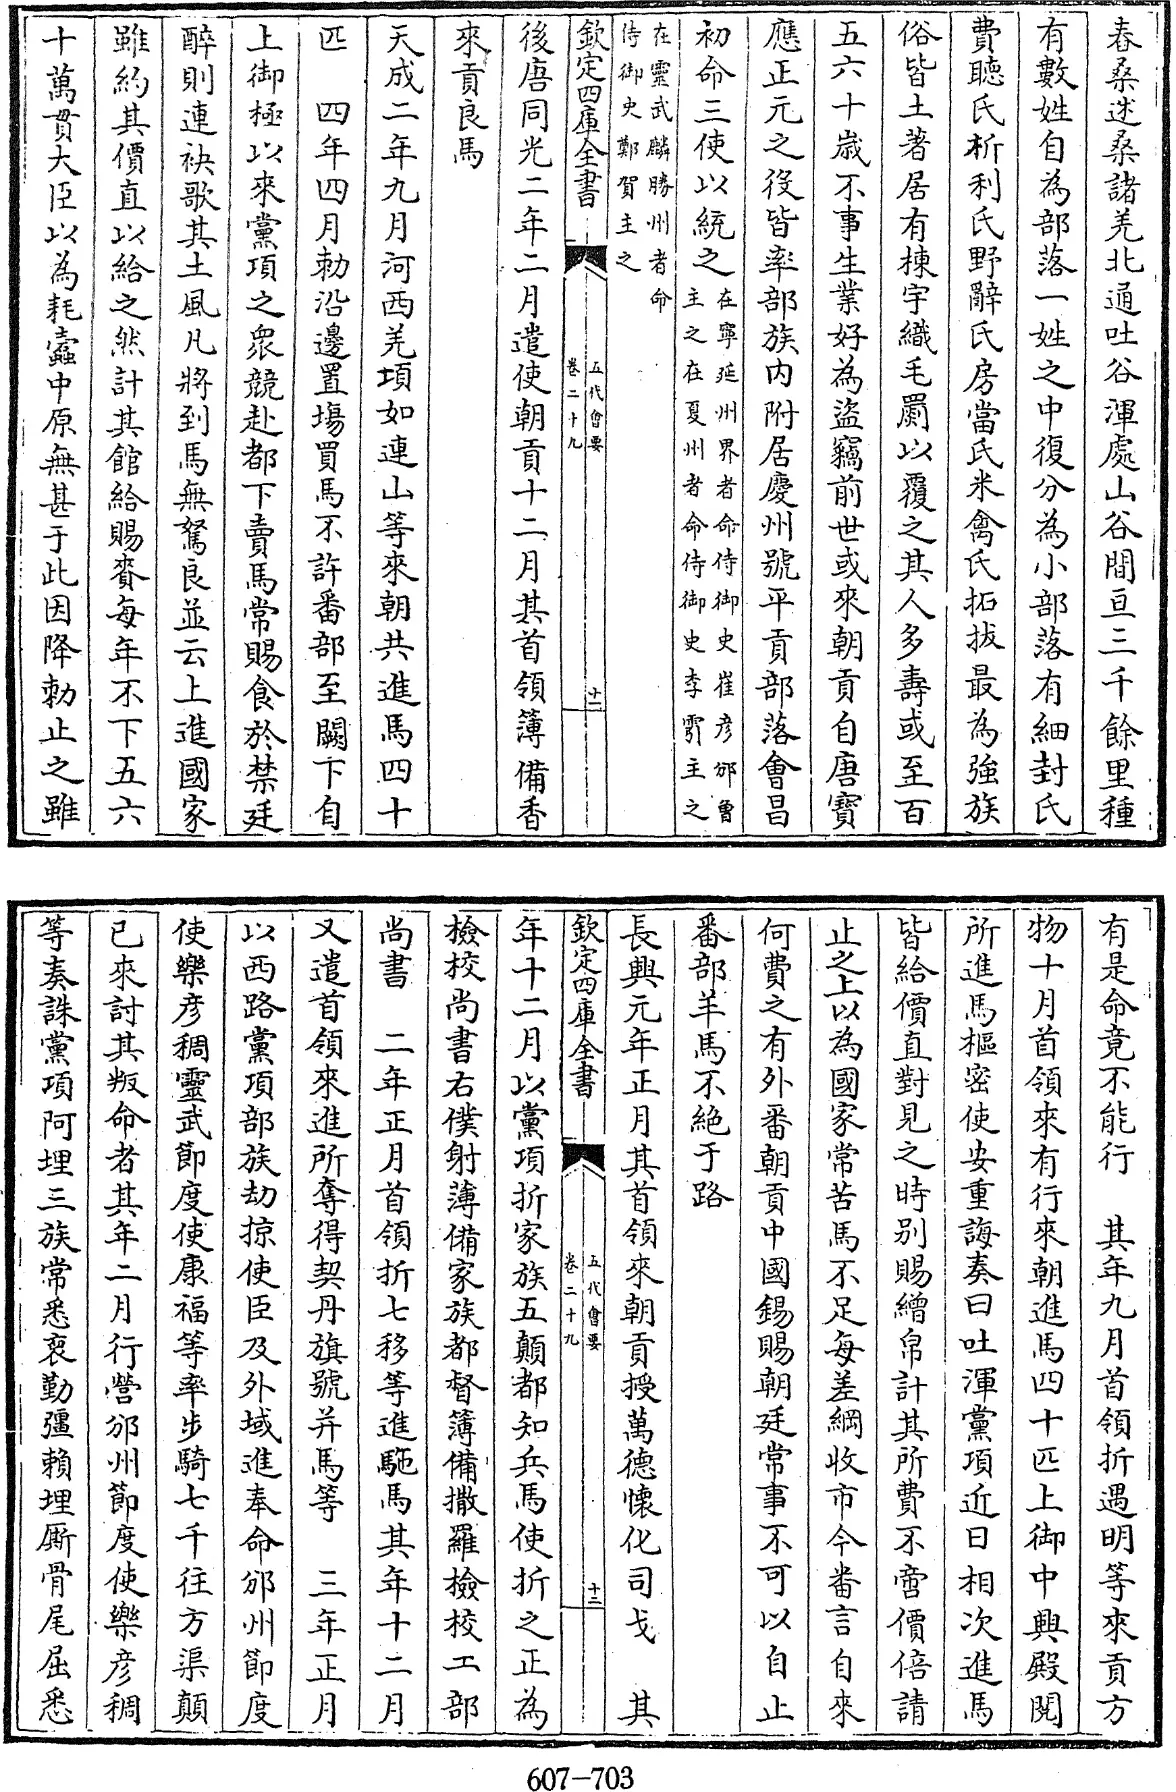 舂桑迷桑諸羌北通吐谷渾處山谷間亘三千餘里種
有數姓自為部落一姓之中復分為小部落有細封氏
費聽氏析利氏野辭氏房當氏米禽氏拓拔最為強族
俗皆土著居有棟宇織毛罽以覆之其人多壽或至百
五六十歲不事生業好為盜竊前世或來朝貢自唐寶
應正元之後皆率部族內附居慶州號平貢部落會昌
初命三使以統之在寧延州界者命侍御史崔彦郍曾
主之在夏州者命侍御史李鄠主之
在靈武麟勝州者命
侍御史鄭賀主之
欽定四庫全書
五代會要
卷二十九
十二
後唐同光二年二月遣使朝貢十二月其首領簿備香
來貢良馬
天成二年九月河西羌項如連山等來朝共進馬四十
匹　四年四月勅沿邊置塲買馬不許番部至闕下自
上御極以來黨項之衆競赴都下賣馬常賜食於禁廷
醉則連袂歌其土風凡將到馬無駑良並云上進國家
雖約其價直以給之然計其館給賜賚每年不下五六
十萬貫大臣以為耗蠧中原無甚于此因降勅止之雖
有是命竟不能行　其年九月首領折遇明等來貢方
物十月首領來有行來朝進馬四十匹上御中興殿閱
所進馬樞密使安重誨奏曰吐渾黨項近日相次進馬
皆給價直對見之時別賜繒帛計其所費不啻價倍請
止之上以為國家常苦馬不足每差綱收市今番言自來
何費之有外番朝貢中國錫賜朝廷常事不可以自止
番部羊馬不絕于路
長興元年正月其首領來朝貢授萬德懷化司戈　其
欽定四庫全書
五代會要
卷二十九
十三
年十二月以黨項折家族五顛都知兵馬使折之正為
檢校尚書右僕射薄備家族都督簿備撒羅檢校工部
尚書　二年正月首領折七移等進駞馬其年十二月
又遣首領來進所奪得契丹旗號并馬等　三年正月
以西路黨項部族劫掠使臣及外域進奉命邠州節度
使樂彦稠靈武節度使康福等率步騎七千往方渠顛
已來討其叛命者其年二月行營邠州節度使樂彦稠
等奏誅黨項阿埋三族常悉裒勤彊賴埋厮骨尾屈悉
607—703